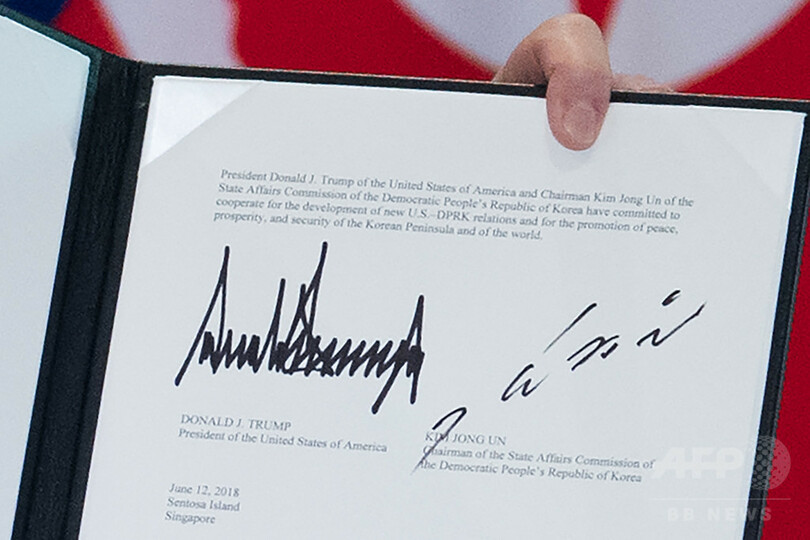 President Donald J. Trump of the United States of America and Chairman Kim Jong Un of the
State Affairs Commission of the Democratic People's Republic of Korea have committed to
cooperate for the development of new U.S.–DPRK relations and for the promotion of peace,
prosperity, and security of the Korean Peninsula and of the world.
DONALD J. TRUMP
President of the United States of America
KIM JONG UN
Chairman of the State Affairs Commission of
the Democratic People's Republic of Korea
June 12, 2018
Sentosa Island
Singapore
AFP
BB NEWS